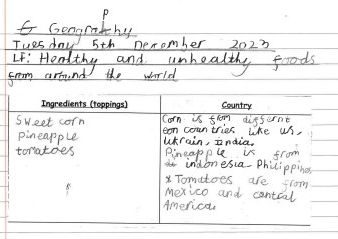 p
Geography
Tuesday 5th December 2023
LF: Healthy and unhealthy foods
from around the world
Ingredients (toppings)
Country
Sweet corn
Pineapple
tomatoes
Corn is from differnt
countries like us,
ukrain, India.
Pineapple is from
indonesia Philippines
Tomatoes are from
Mexico and central
America.